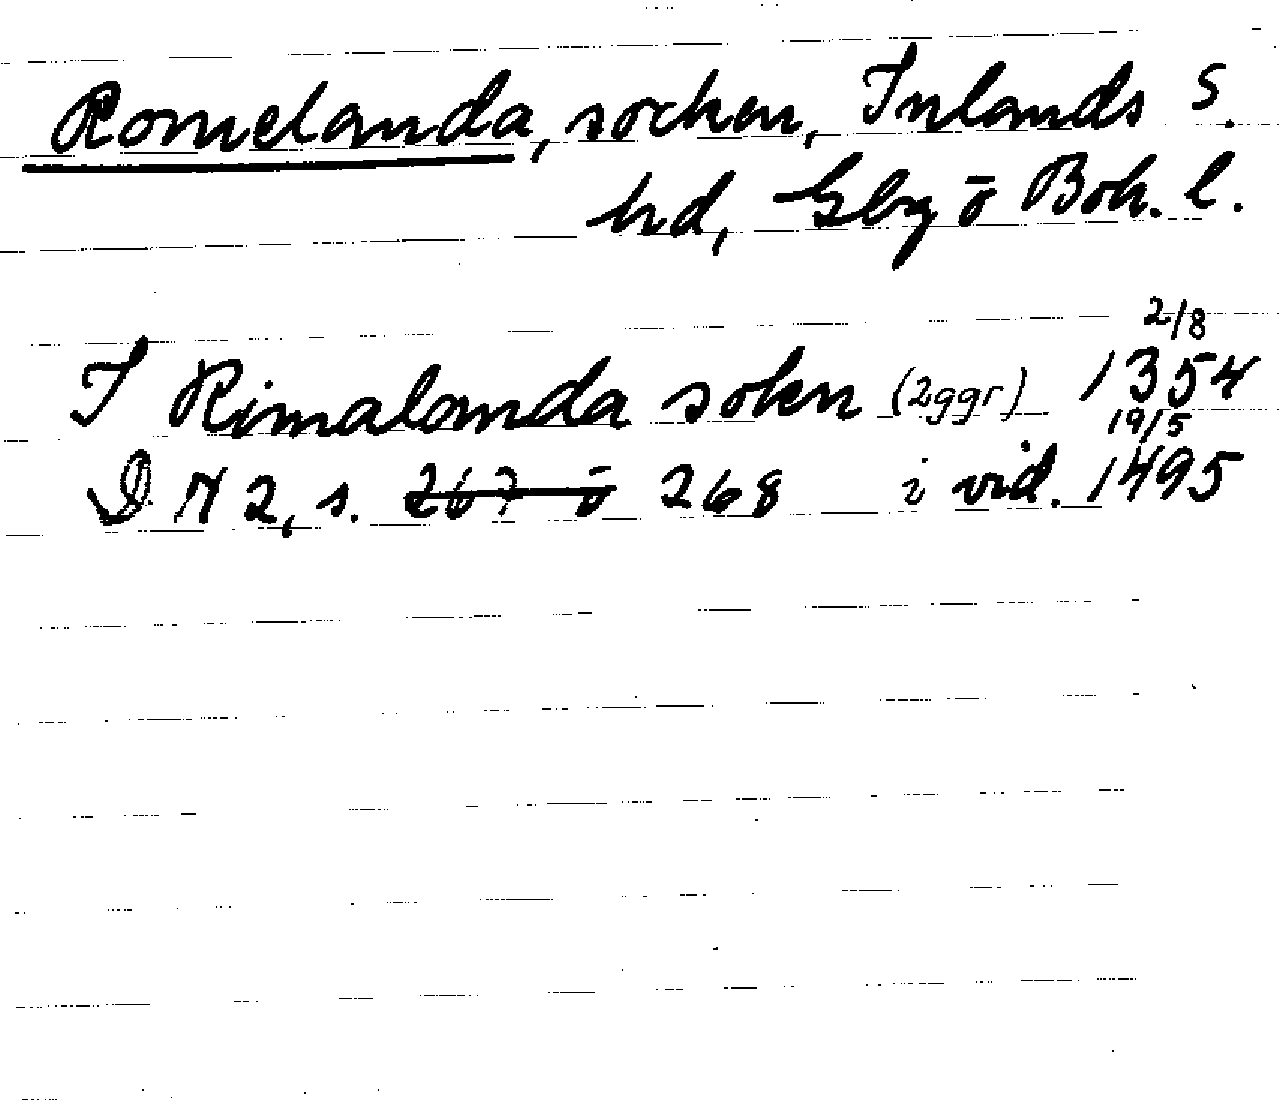 Romelanda, socken, Inlands S.
hd, Gbg o Boh. l.
2/8
I Rimalanda sokn (2ggr) 1354
19/5
DN 2, s. 267 o 268 i vid. 1495